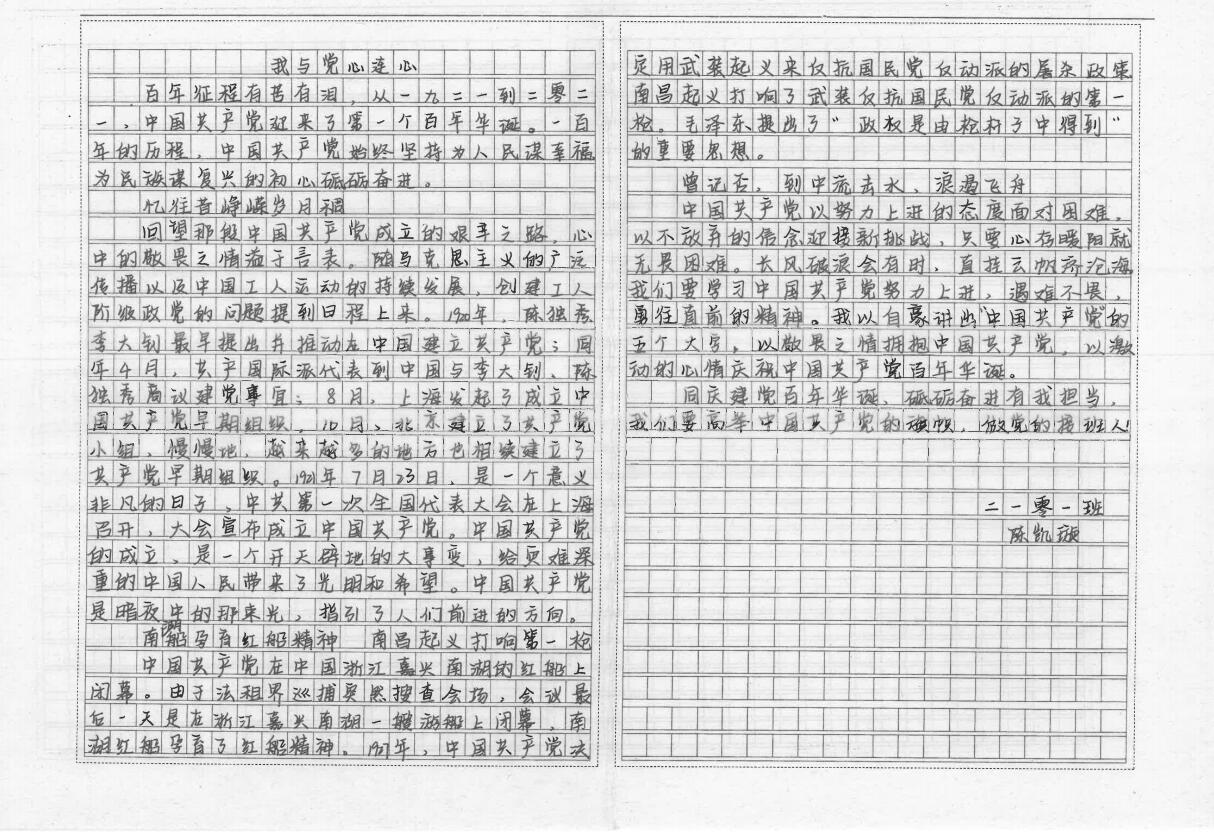 我与党心连心
百年征程有苦有泪，从一九二一到二零二
一，中国共产党迎来了第一个百年华诞。一百
年的历程，中国共产党始终坚持为人民谋幸福
为民族谋复兴的初心砥砺奋进。
忆往昔峥嵘岁月稠
回望那段中国共产党成立的艰辛之路，心
中的敬畏之情溢于言表。随马克思主义的广泛
传播以及中国工人运动的持续发展，创建工人
阶级政党的问题提到日程上来。1920年，陈独秀
李大钊最早提出并推动在中国建立共产党；同
年4月，共产国际派代表到中国与李大钊、陈
独秀商议建党事宜；8月，上海发起了成立中
国共产党早期组织，10月，北京建立了共产党
小组，慢慢地，越来越多的地方也相续建立了
共产党早期组织。1921年7月23日，是一个意义
非凡的日子，中共第一次全国代表大会在上海
召开，大会宣布成立中国共产党。中国共产党
的成立，是一个开天辟地的大事变，给灾难深
重的中国人民带来了光明和希望。中国共产党
是暗夜中的那束光，指引了人们前进的方向。
南湖船孕育红船精神 南昌起义打响第一枪
中国共产党在中国浙江嘉兴南湖的红船上
闭幕。由于法租界巡捕突然搜查会场，会议最
后一天是在浙江嘉兴南湖一艘游船上闭幕，南
湖红船孕育了红船精神。1927年，中国共产党决
定用武装起义来反抗国民党反动派的屠杀政策
南昌起义打响了武装反抗国民党反动派的第一
枪。毛泽东提出了“政权是由枪杆子中得到”
的重要思想。
曾记否，到中流击水，浪遏飞舟
中国共产党以努力上进的态度面对困难，
以不放弃的信念迎接新挑战，只要心存暖阳就
无畏困难。长风破浪会有时，直挂云帆济沧海
我们要学习中国共产党努力上进，遇难不畏，
勇往直前的精神。我以自豪讲出“中国共产党”的
五个大字，以敬畏之情拥抱中国共产党，以激
动的心情庆祝中国共产党百年华诞。
同庆建党百年华诞，砥砺奋进有我担当，
我们要高举中国共产党的旗帜，做党的接班人！
二一零一班
陈凯璇